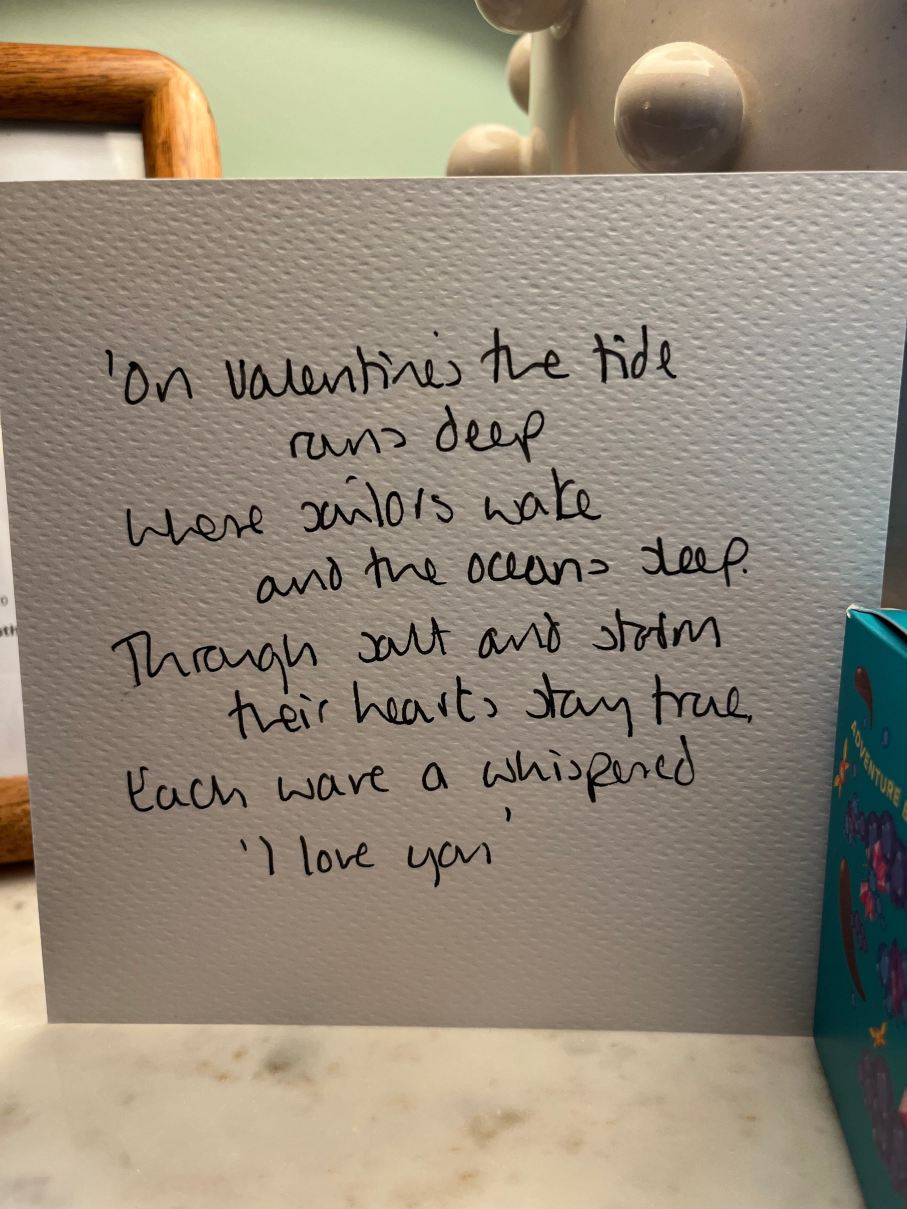 'On Valentine's the tide
runs deep
Where sailors wake
and the oceans sleep.
Through salt and storm
their hearts stay true,
Each wave a whispered
'I love you'
ADVENTURE